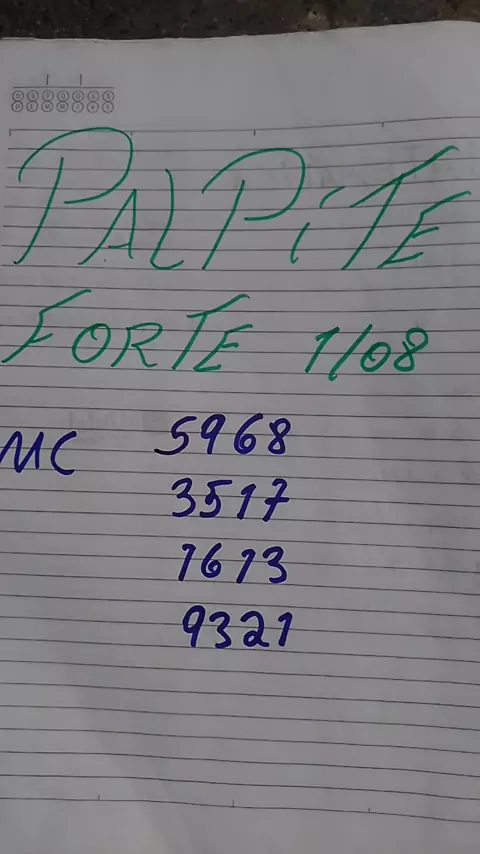 PALPiTE
FORTE 1/08
MC 5968
3517
1613
9321